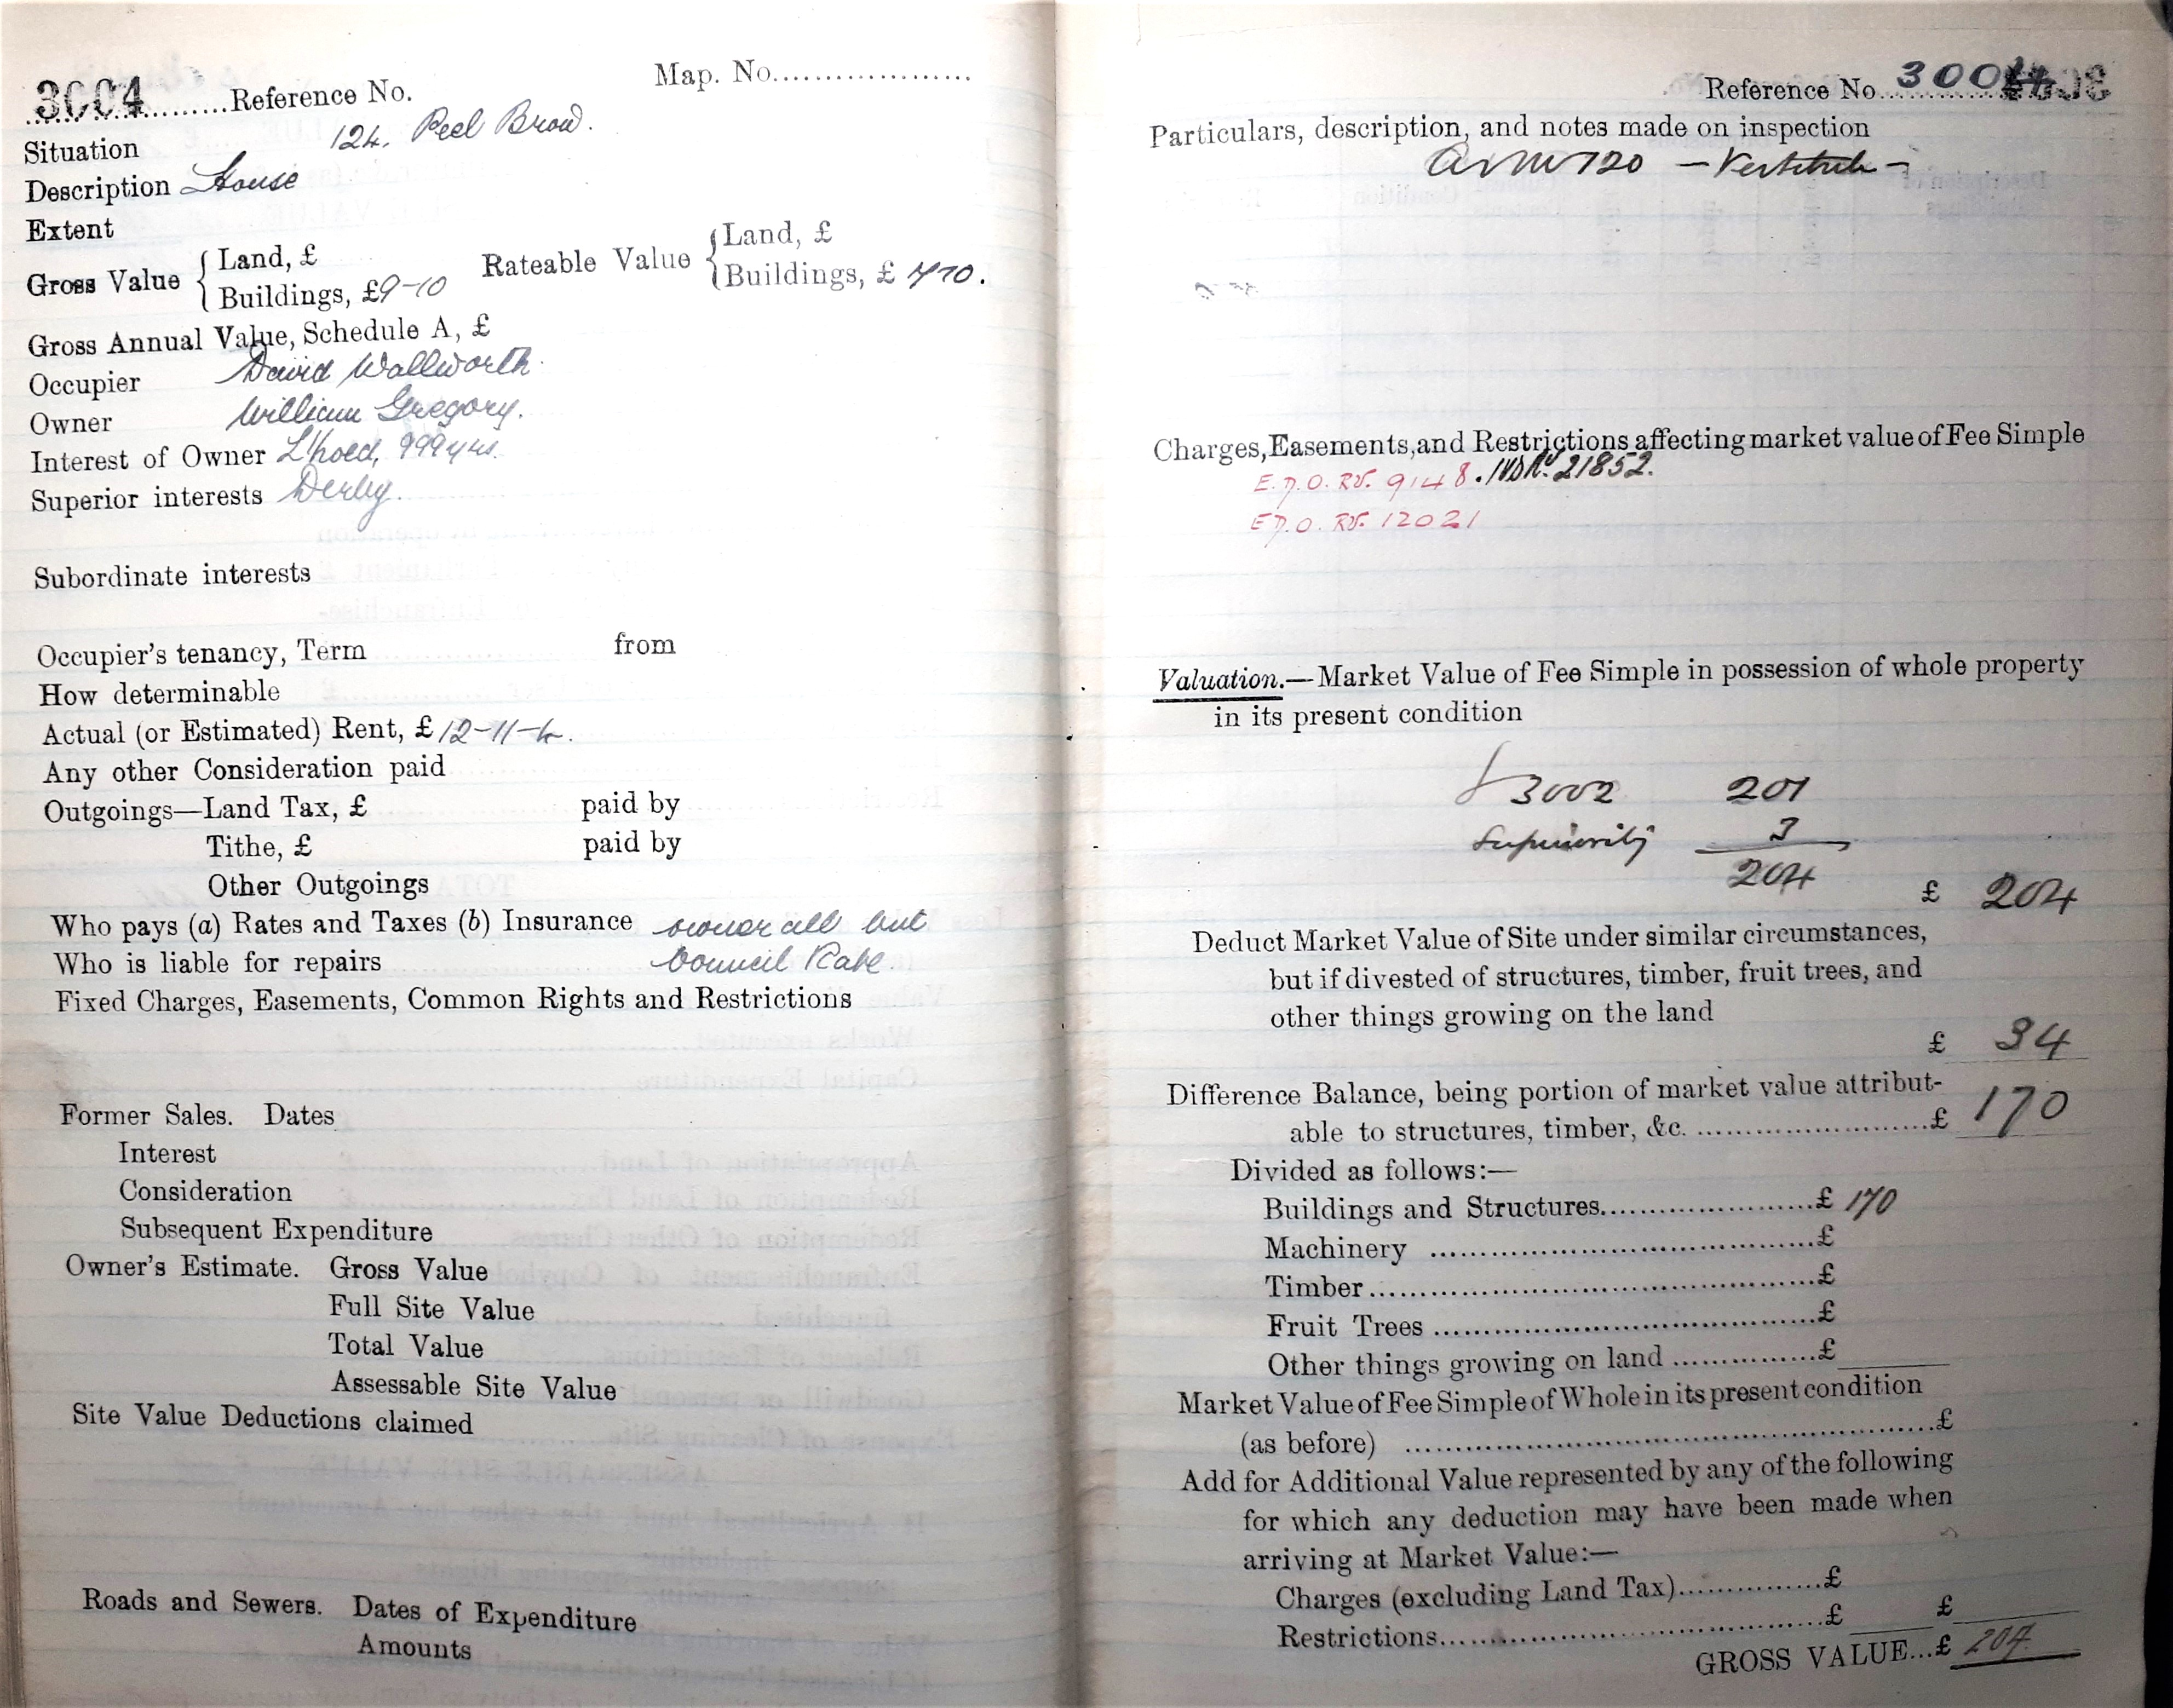 3004 Reference No.
Map. No.
Situation 124, Peel Brow.
Description House
Extent
Gross Value { Land, £
Buildings, £9-10
Rateable Value { Land, £
Buildings, £ 7-10.
Gross Annual Value, Schedule A, £
Occupier David Wallworth
Owner William Gregory.
Interest of Owner L'hold, 999 yrs.
Superior interests Derby.
Subordinate interests
Occupier's tenancy, Term from
How determinable
Actual (or Estimated) Rent, £ 12-11-4.
Any other Consideration paid
Outgoings—Land Tax, £ paid by
Tithe, £ paid by
Other Outgoings
Who pays (a) Rates and Taxes (b) Insurance owner all but
Who is liable for repairs Council Rate.
Fixed Charges, Easements, Common Rights and Restrictions
Former Sales. Dates
Interest
Consideration
Subsequent Expenditure
Owner's Estimate. Gross Value
Full Site Value
Total Value
Assessable Site Value
Site Value Deductions claimed
Roads and Sewers. Dates of Expenditure
Amounts
Reference No. 3004
Particulars, description, and notes made on inspection
120
Charges, Easements, and Restrictions affecting market value of Fee Simple
E.D.O. RV. 9148. IVD No. 21852.
E.D.O. RV. 12021
Valuation.—Market Value of Fee Simple in possession of whole property
in its present condition
3002 201
Superiority 3
204
£ 204
Deduct Market Value of Site under similar circumstances,
but if divested of structures, timber, fruit trees, and
other things growing on the land
£ 34
Difference Balance, being portion of market value attribut-
able to structures, timber, &c. £ 170
Divided as follows:—
Buildings and Structures £ 170
Machinery £
Timber £
Fruit Trees £
Other things growing on land £
Market Value of Fee Simple of Whole in its present condition
(as before) £
Add for Additional Value represented by any of the following
for which any deduction may have been made when
arriving at Market Value:—
Charges (excluding Land Tax) £
Restrictions £ £
GROSS VALUE...£ 204